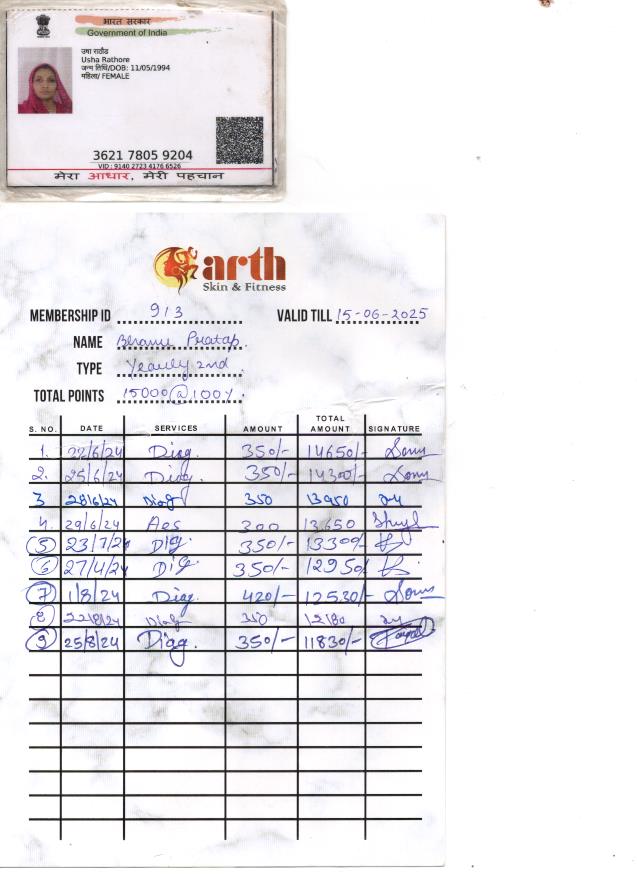 भारत सरकार
Government of India
उषा राठौड
Usha Rathore
जन्म तिथि/DOB: 11/05/1994
महिला/ FEMALE
3621 7805 9204
VID : 9140 2723 4176 6526
मेरा आधार, मेरी पहचान
arth
Skin & Fitness
MEMBERSHIP ID 913 VALID TILL 15-06-2025
NAME Bhanu Pratap.
TYPE Yearly 2nd.
TOTAL POINTS 15000@100%.
S. NO. DATE SERVICES AMOUNT TOTAL AMOUNT SIGNATURE
1. 22/6/24 Diag. 350/- 14650/-
2. 25/6/24 Diag. 350/- 14300/-
3 28/6/24 Diag 350 13950
4. 29/6/24 Aes 300 13650
5 23/7/24 Dig. 350/- 13300/-
6 27/4/24 Dig. 350/- 12950/-
7 1/8/24 Diag. 420/- 12530/-
8 22/8/24 Diag 350 12180
9 25/8/24 Diag. 350/- 11830/-